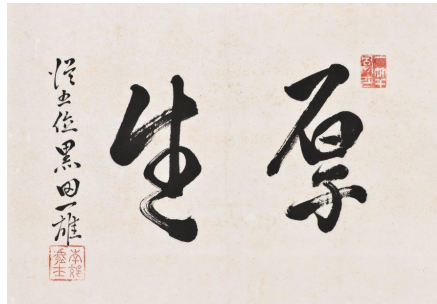 厚生
従五位黒田一雄